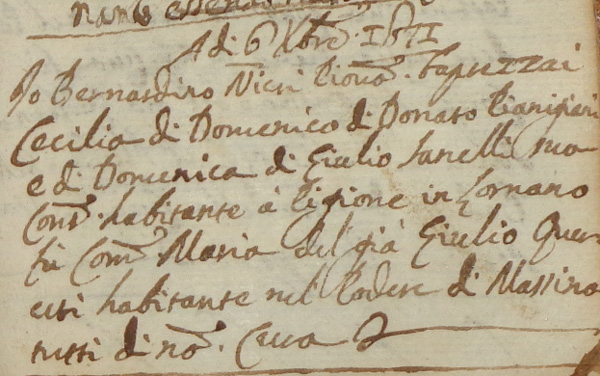 A di 6 Xbre 1671
Io Bernardino Nieri Piovo. bapuzzai
Cecilia di Domenico di Donato Pianigiani
e di Domenica di Giulio Sanelli sua
Cons. habitante à Pigione in Lornano
fù Com. Maria del già Giulio Quer
cisi habitante nel Podere di Massino
tutti di no. Cura